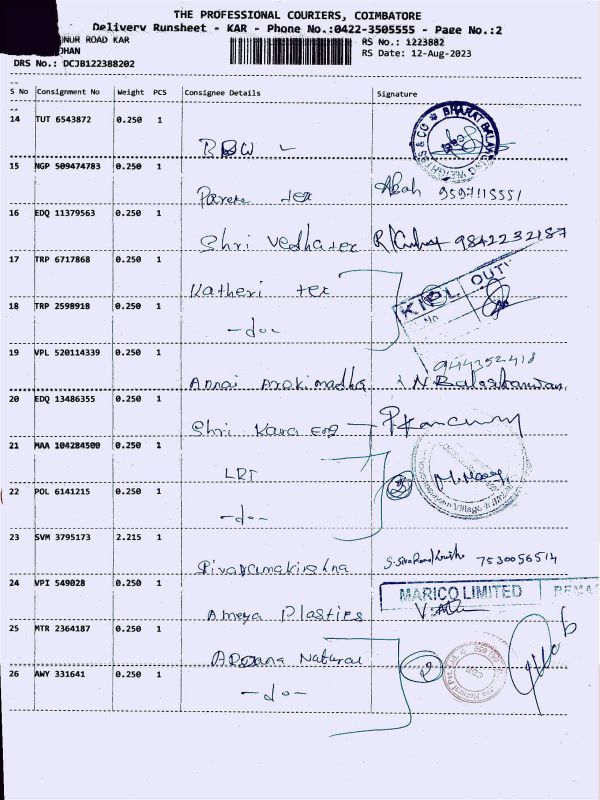 THE PROFESSIONAL COURIERS, COIMBATORE
Delivery Runsheet - KAR - Phone No.:0422-3505555 - Page No.:2
NUR ROAD KAR RS No.: 1223882
OHAN RS Date: 12-Aug-2023
DRS No.: DCJB122388202
S No Consignment No Weight PCS Consignee Details Signature
14 TUT 6543872 0.250 1
BHARAT BALA
& CO
15 NGP 509474783 0.250 1
9597115551
16 EDQ 11379563 0.250 1
Shri Vedha tex 9842232187
17 TRP 6717868 0.250 1
Katheri tex
KNPL OUT
18 TRP 2598918 0.250 1
-do-
19 VPL 520114339 0.250 1
Annai Arokimadha
20 EDQ 13486355 0.250 1
Shri Kara Eng
21 MAA 104284500 0.250 1
LRT
22 POL 6141215 0.250 1
-do-
23 SVM 3795173 2.215 1
7530056514
24 VPI 549028 0.250 1
MARICO LIMITED
Ameya Plastics
25 MTR 2364187 0.250 1
Natural 2
26 AWY 331641 0.250 1
-do-